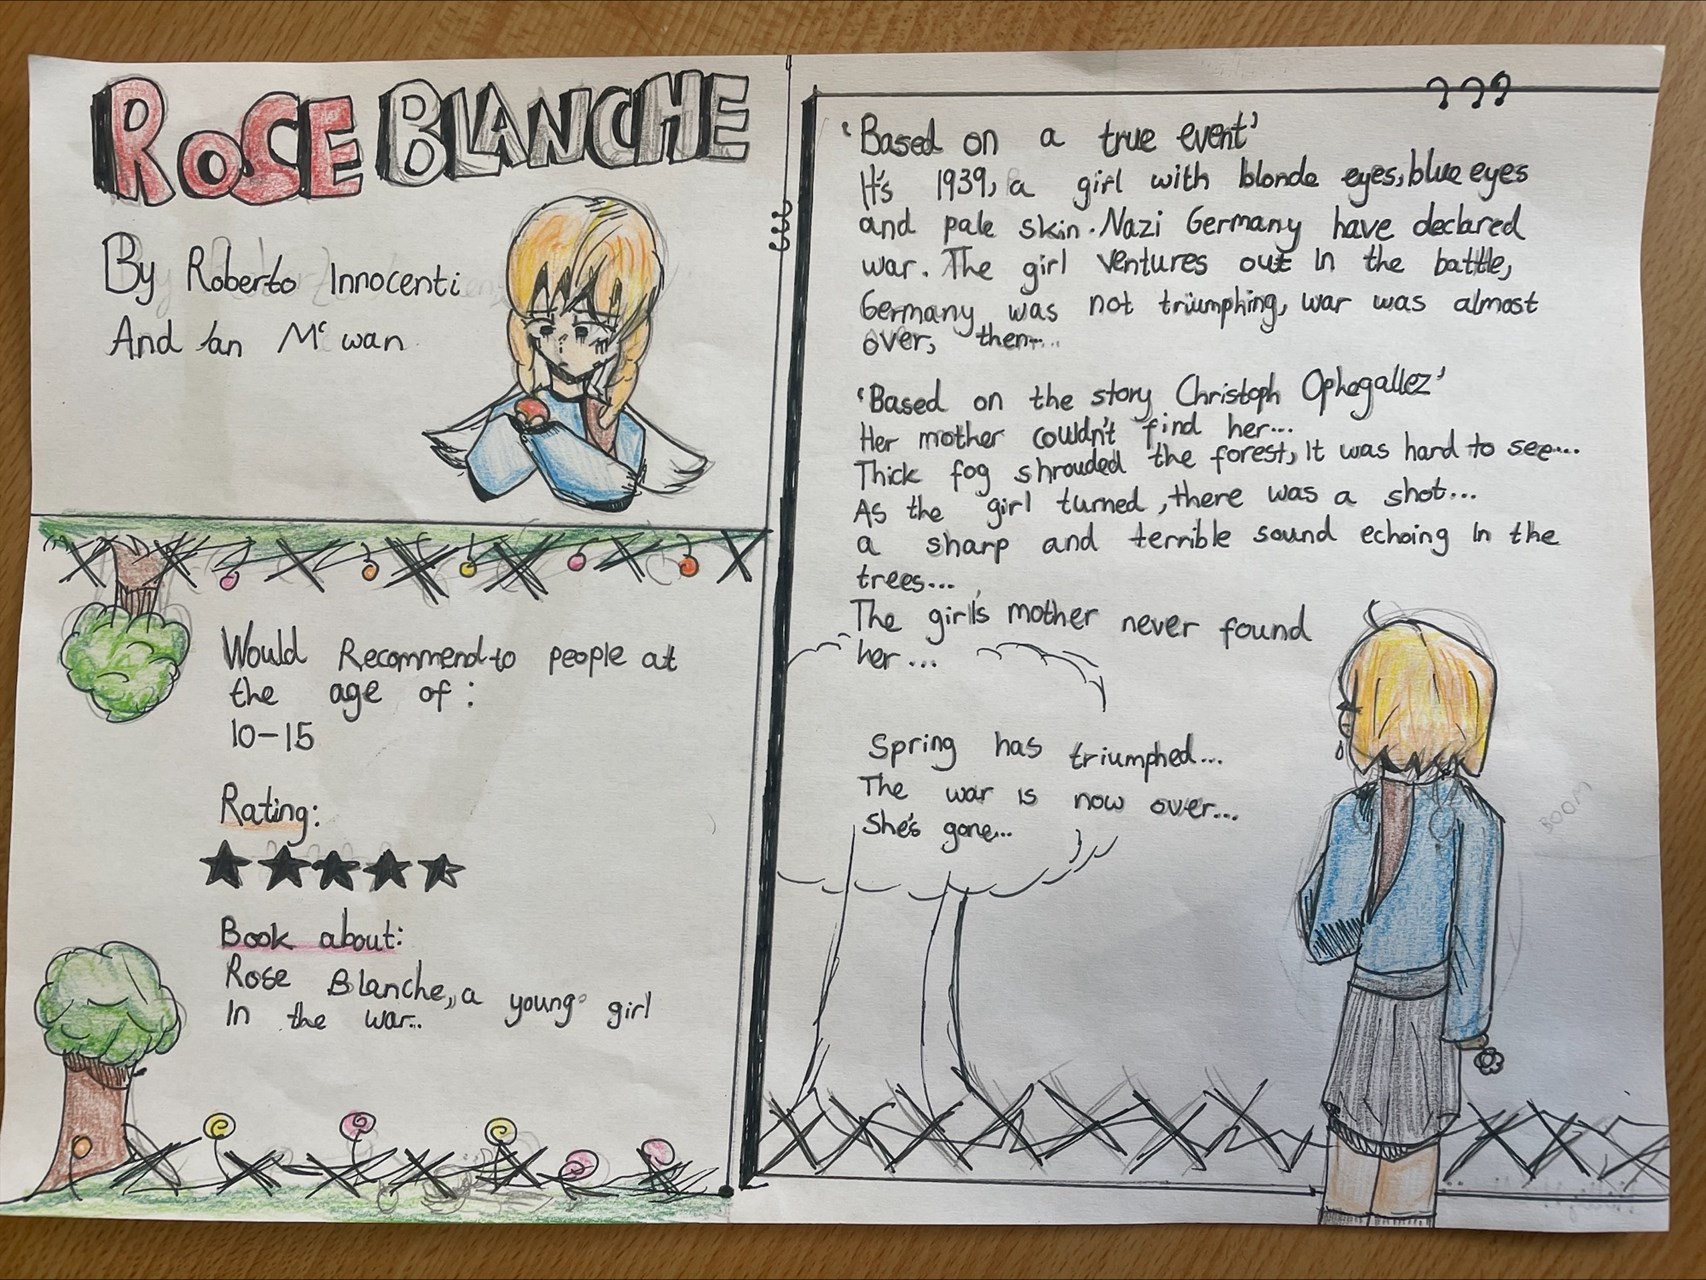 ROSE BLANCHE
By Roberto Innocenti
And Ian Mc wan
Would Recommend to people at
the age of:
10-15
Rating:
Book about:
Rose Blanche, a young girl
In the war...
'Based on a true event'
It's 1939, a girl with blonde eyes, blue eyes
and pale skin. Nazi Germany have declared
war. The girl ventures out in the battle,
Germany was not triumphing, war was almost
over, then...
'Based on the story Christoph Ophegallez'
Her mother couldn't find her...
Thick fog shrouded the forest, It was hard to see...
As the girl turned, there was a shot...
a sharp and terrible sound echoing In the
trees...
The girl's mother never found
her...
Spring has triumphed...
The war is now over...
She's gone...
BOOM